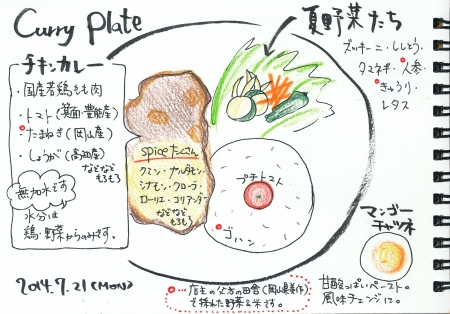 Curry Plate
チキンカレー
・国産若鶏もも肉
・トマト(箕面・豊能産)
・たまねぎ(岡山産)
・しょうが(高知産)
などなど
もろもろ
無加水です
水分は
鶏・野菜からのみです。
2014.7.21(MON)
spiceたくさん
クミン・ナツメグ・
シナモン・クローブ・
ローリエ・コリアンダー
などなど
もろもろ
プチトマト
ゴハン
夏野菜たち
ズッキーニ・ししとう・
タマネギ・人参・
きゅうり・
レタス
マンゴー
チャツネ
甘酸っぱいペースト。
風味チェンジに。
・・・店主の父方の田舎(岡山県美作)
で採れた野菜&米です。